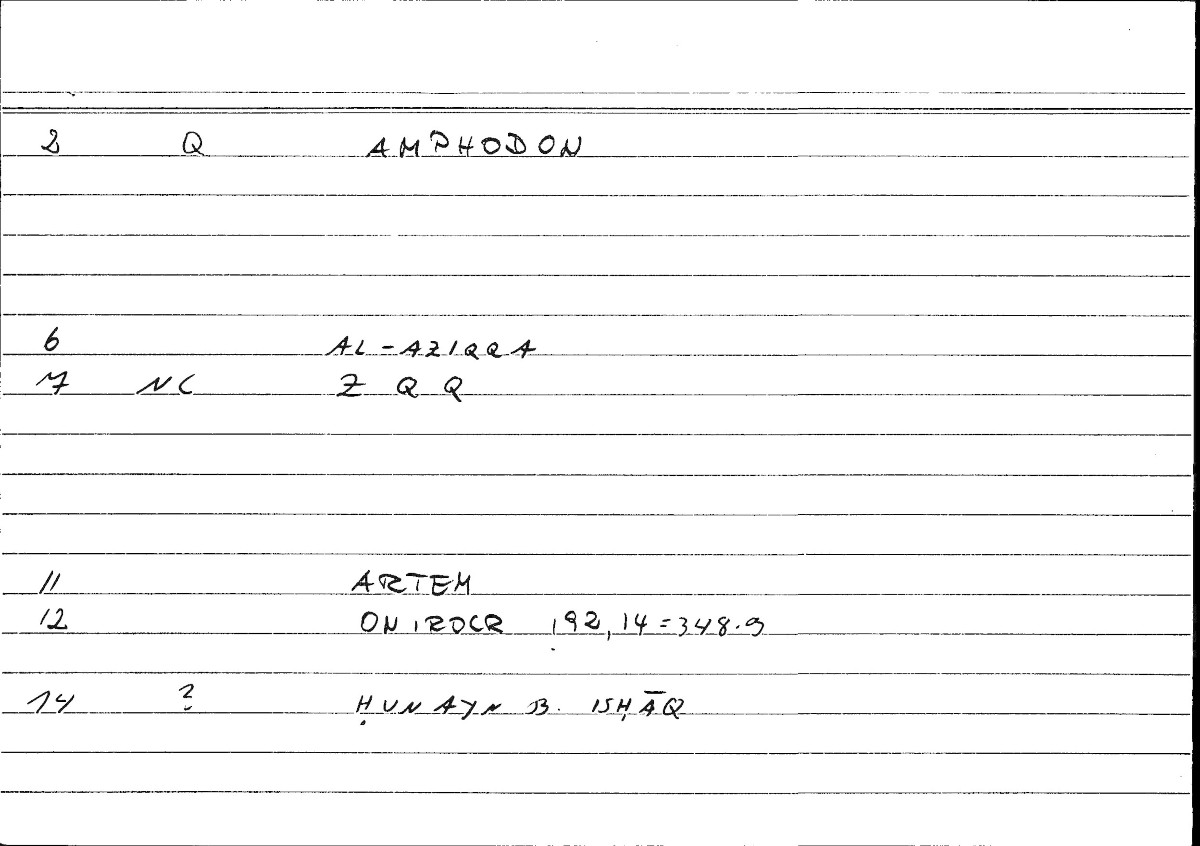 2 Q AMPHODON
6 AL-AZIQQA
7 NC Z Q Q
11 ARTEM
12 ONIROCR 192,14=348.9
14 ? ḤUNAYN B. ISḤĀQ